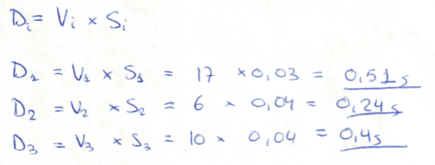 Di = Vi × Si
D1 = V1 × S1 = 17 × 0,03 = 0,51s
D2 = V2 × S2 = 6 × 0,04 = 0,24s
D3 = V3 × S3 = 10 × 0,04 = 0,4s